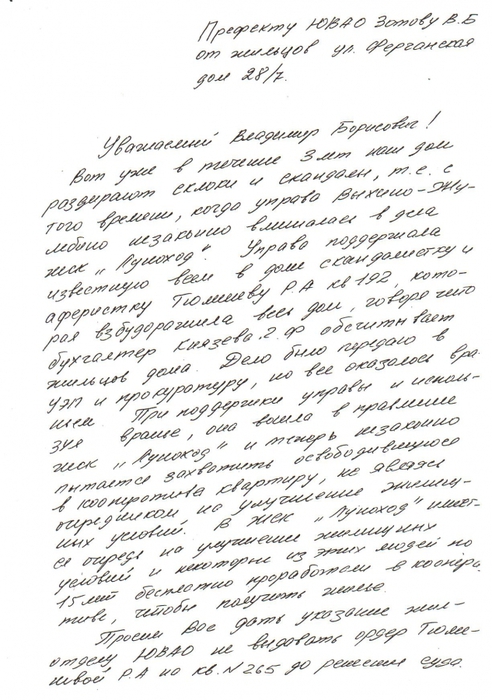 Префекту ЮВАО Зотову В.Б
от жильцов ул. Ферганская
дом 28/7.
Уважаемый Владимир Борисович!
Вот уже в течение 3 лет наш дом
раздирают склоки и скандалы, т.е. с
того времени, когда управа Выхино-Жу-
лебино незаконно вмешалась в дела
жск „Луноход". Управа поддержала
известную всем в доме скандалистку и
аферистку Тюменеву Р.А кв 192, кото-
рая взбудоражила весь дом, говоря что
бухгалтер Князева.Г.Ф обсчитывает
жильцов дома. Дело было передано в
УЭП и прокуратуру, но все оказалось вра-
ньем. При поддержки управы и исполь-
зуя вранье, она вошла в правление
жск „Луноход" и теперь незаконно
пытается захватить освободившуюся
в кооперативе квартиру, не являясь
очередником на улучшение жилищ-
ных условий. В жск „Луноход" имеет-
ся очередь на улучшение жилищных
условий и некоторые из этих людей по
15 лет бесплатно проработали в коопера-
тиве, чтобы получить жилье.
Просим Вас дать указание жил-
отделу ЮВАО не выдавать ордер Тюме-
невой Р.А на кв. N 265 до решения суда.